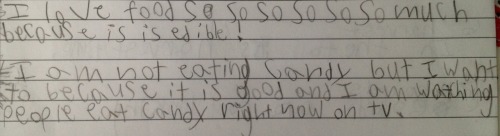 I love food so so so so so so much
because is is edible!
I am not eating candy but I want
to because it is good and I am wathing
people eat candy right now on tv.